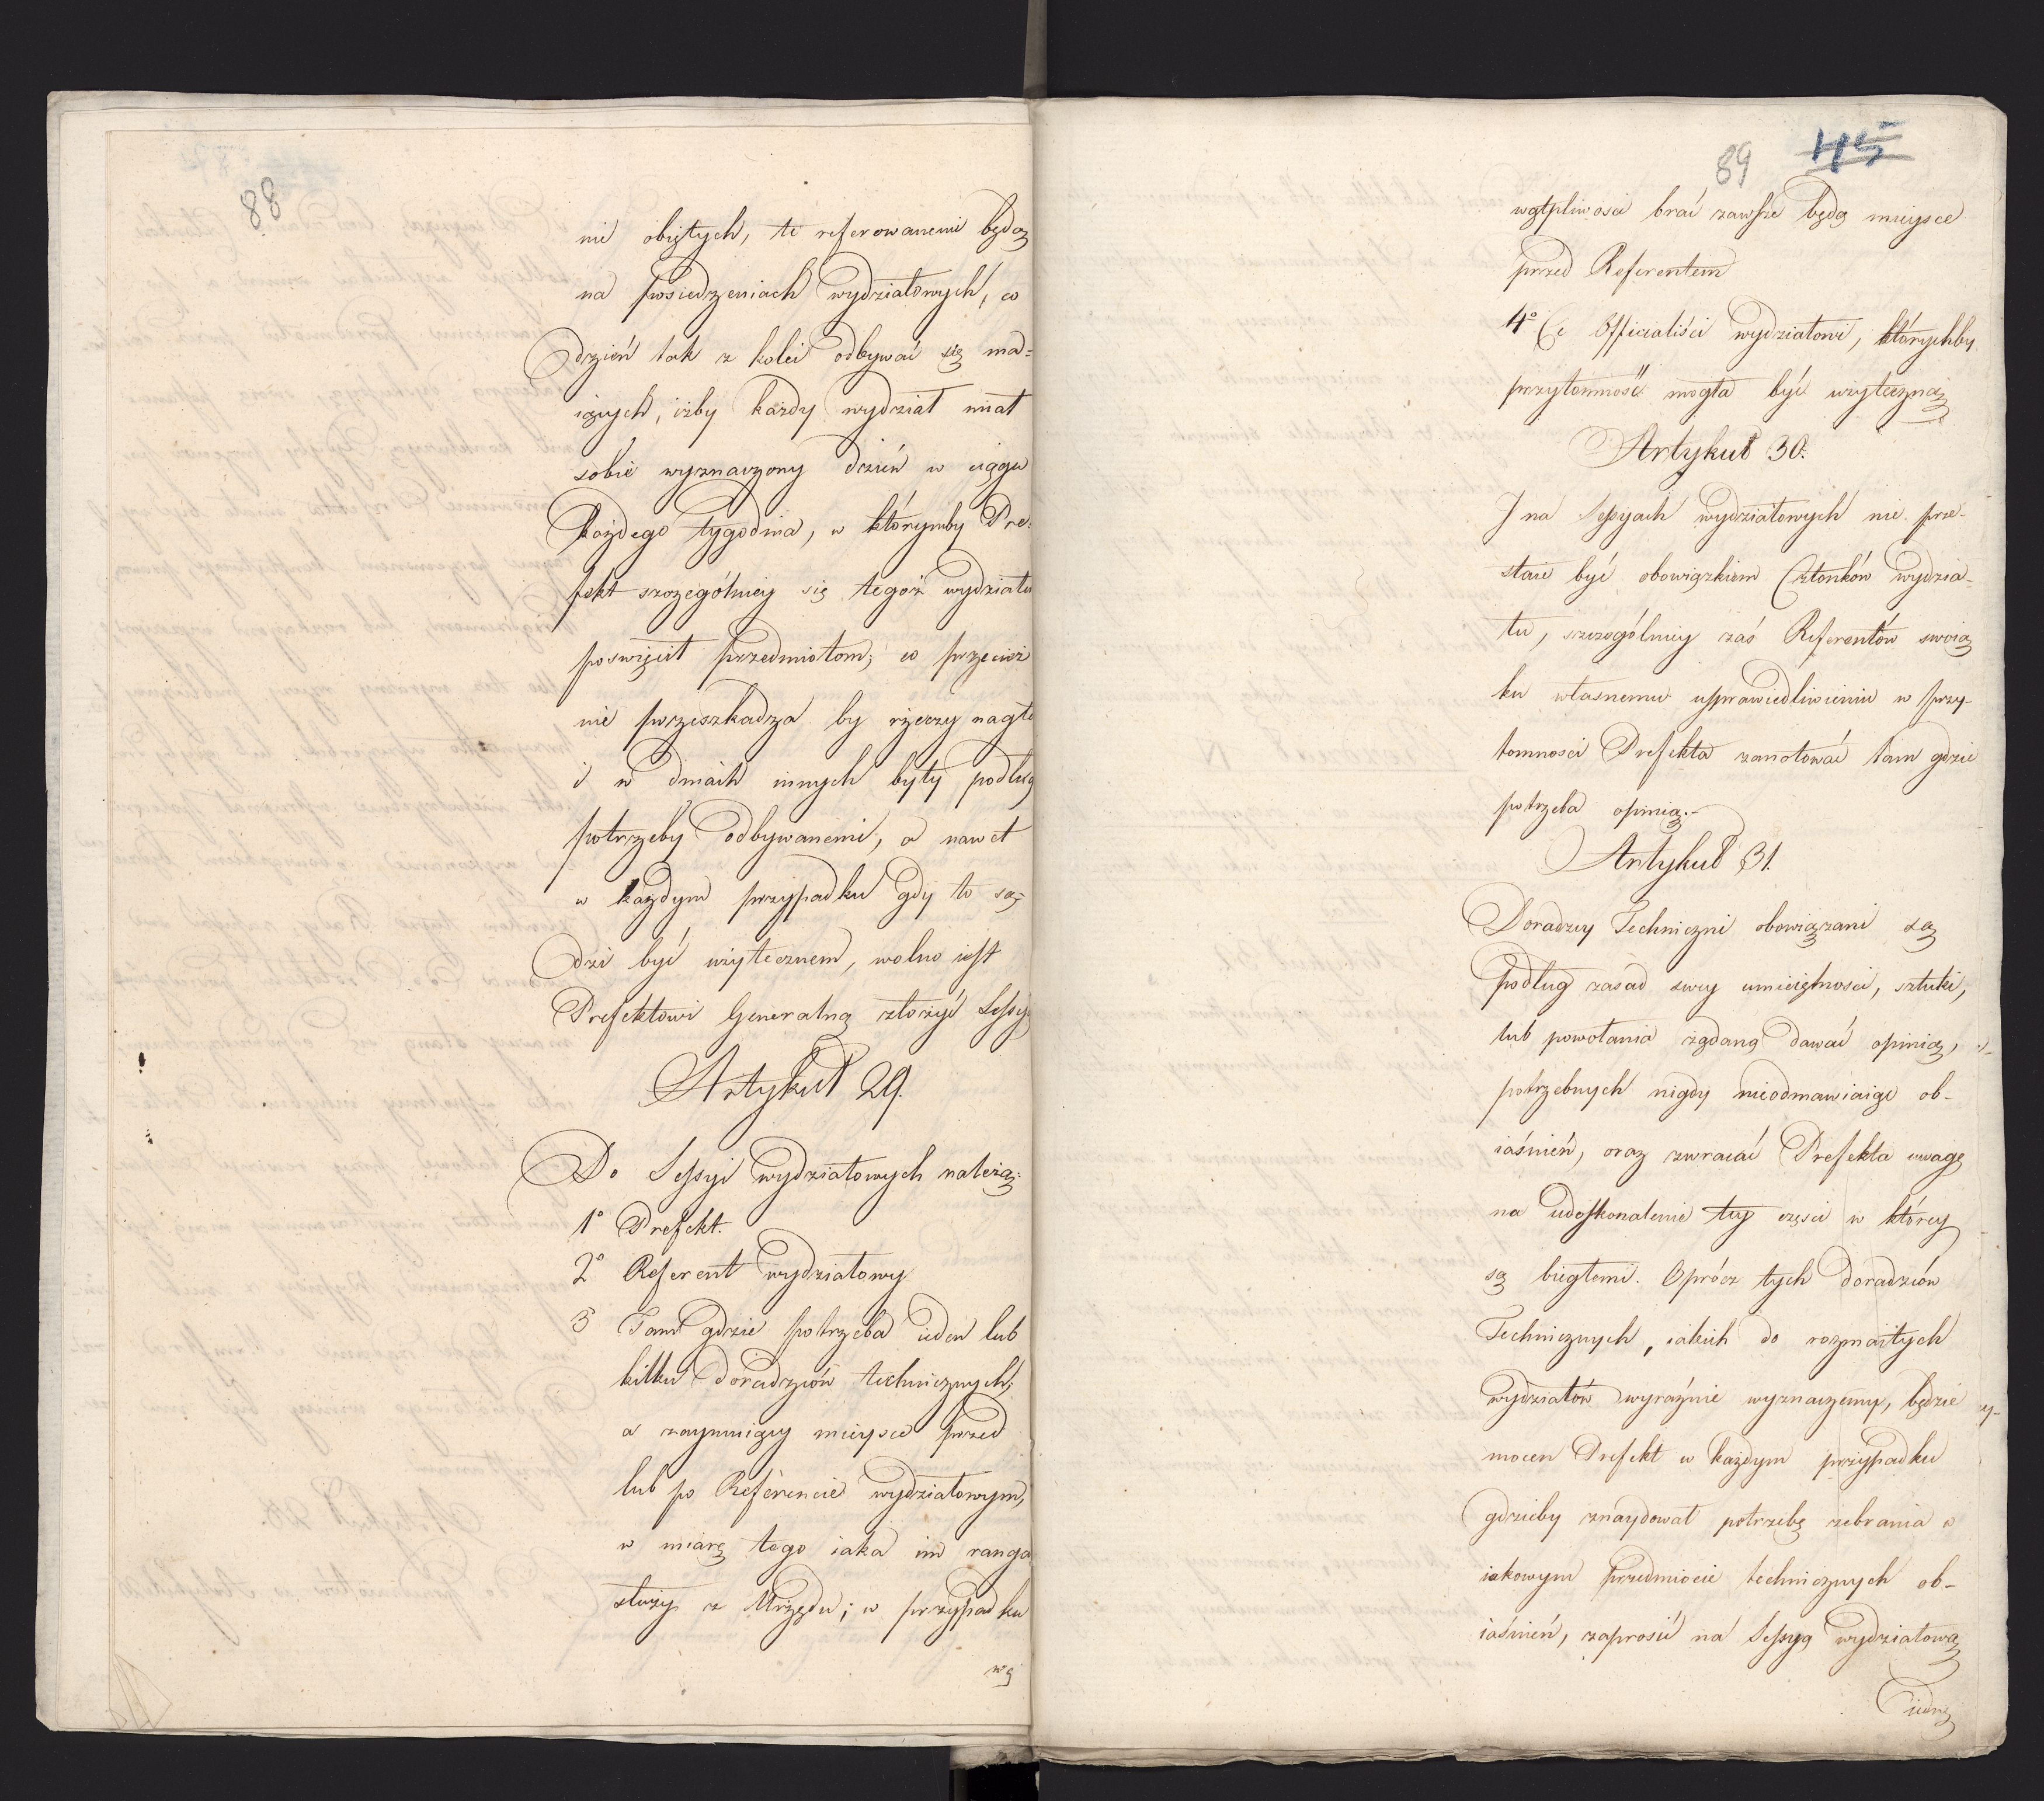 88
nie obiętych, te referowanemi będą
na posiedzeniach wydziałowych, co
dzień tak z kolei odbywać się ma=
iących, iżby każdy wydział miał
sobie wyznaczony dzień w ciągu
każdego tygodnia, w którymby Pre=
fekt szczególniey się tegoż wydziału
poswięcił przedmiotom; co przecież
nie przeszkadza by rzeczy nagłe
i w dniach innych były podług
potrzeby odbywanemi, a nawet
w każdym przypadku gdy to są=
dzi być użytecznem, wolno iest
Prefektowi Generalną złożyć Sessyą
Artykuł 29.
Do Sessyi wydziałowych należą:
1° Prefekt.
2° Referent wydziałowy
3 Tam gdzie potrzeba ieden lub
kilku doradzców technicznych,
a zaymuiący mieysce przed
lub po Referencie wydziałowym,
w miarę tego iaka im ranga
służy z Urzędu; w przypadku
wą
89 45
wątpliwosci brać zawsze będą mieysce
przed Referentem
4° Ci Officialiści wydziałowi, którychby
przytomność mogła być użyteczną
Artykuł 30.
I na Sessyach wydziałowych nie prze-
staie być obowiązkiem Członków wydzia-
łu, szczególniey zaś Referentów swoią
ku własnemu usprawiedliwieniu w przy-
tomnosci Prefekta zanotować tam gdzie
potrzeba opinią.-
Artykuł 31.
Doradzcy Techniczni obowiązani są
podług zasad swey umieiętnosci, sztuki,
lub powołania żądaną dawać opinią,
potrzebnych nigdy nieodmawiaiąc ob-
iaśnień, oraz zwracać Prefekta uwagę
na udoskonalenie tey częsci w którey
są biegłemi. Oprócz tych doradzców
Technicznych, iakich do rozmaitych
wydziałów wyraźnie wyznaczemy, będzie
mocen Prefekt w każdym przypadku
gdzieby znaydował potrzebę zebrania o
iakowym przedmiocie technicznych ob-
iaśnień, zaprosić na Sessyą wydziałową
iedną